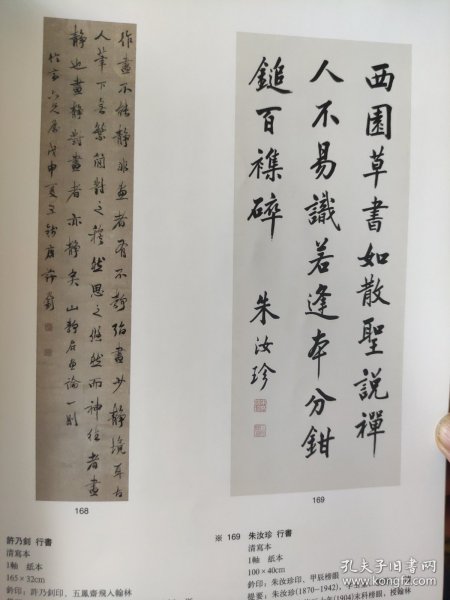 作畫不能靜非畫者有不靜殆畫少靜境耳古
人筆下無繁簡對之穆然思之悠然而神往者畫
靜也畫靜對畫者亦靜矣 山靜居畫論一則
六兄屬 戊申夏五錢唐許乃釗
168
西園草書如散聖說禪
人不易識若逢本分鉗
鎚百襍碎
朱汝珍
169
許乃釗 行書
清寫本
1軸 紙本
165×32cm
鈐印：許乃釗印、五鳳齋
※ 169 朱汝珍 行書
清寫本
1軸 紙本
100×40cm
鈐印：朱汝珍印、甲辰榜眼
提要：朱汝珍(1870-1942)，
(1904)末科榜眼，授翰林
孔夫子旧书网